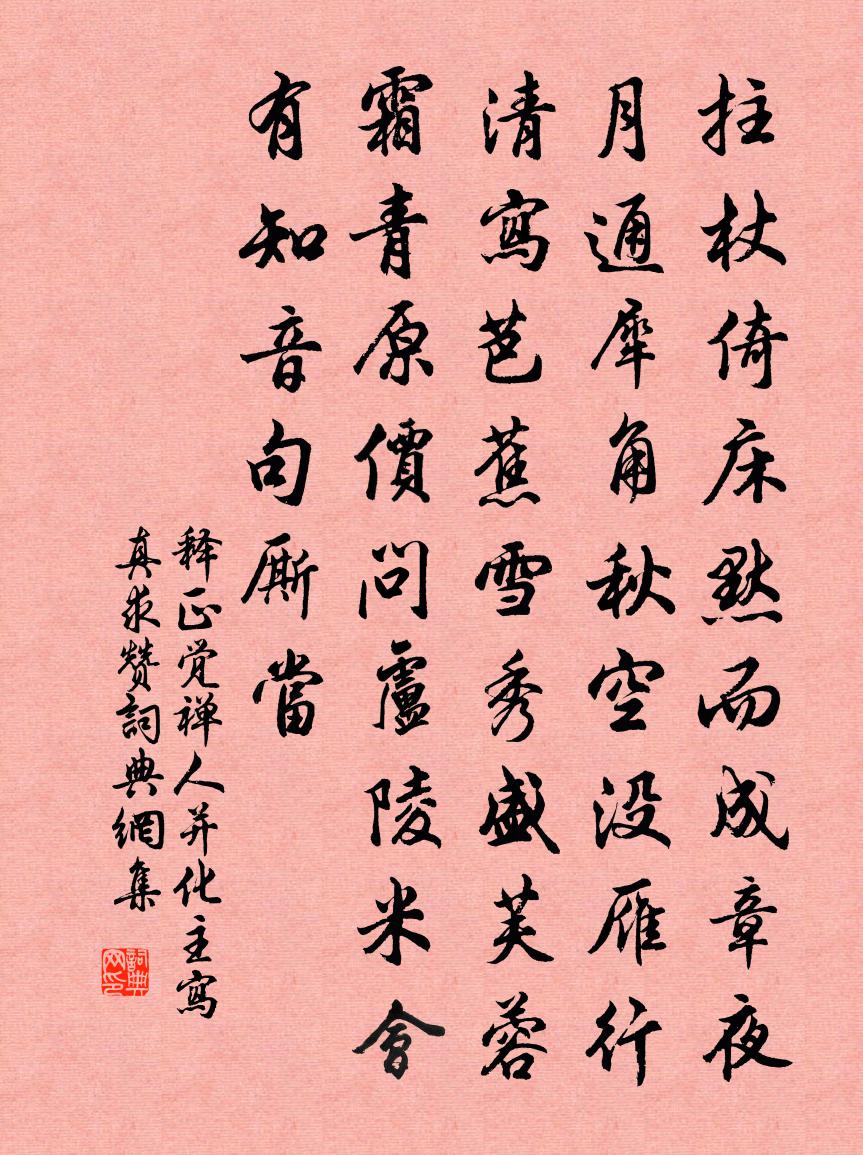 拄杖倚床默而成章夜
月通犀角秋空没雁行
清寫芭蕉雪秀盛芙蓉
霜青原價問廬陵米會
有知音句厮當
释正觉禅人并化主寫
真求赞詞典網集
詞典网印